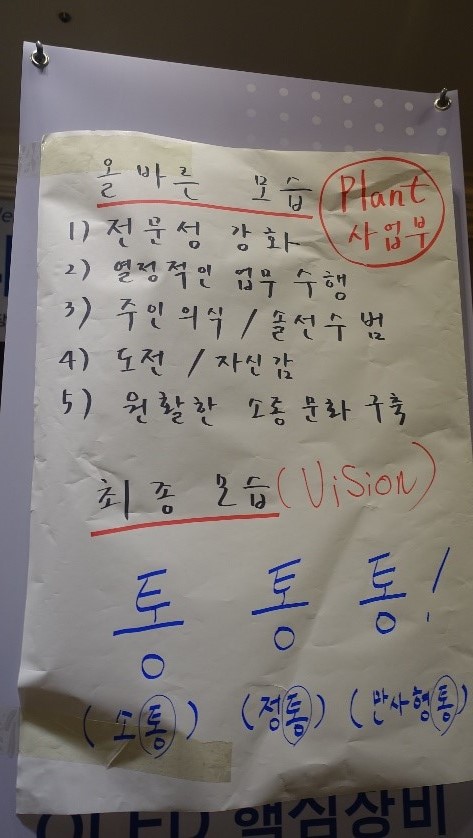 올바른 모습
Plant
사업부
1) 전문성 강화
2) 열정적인 업무 수행
3) 주인의식 / 솔선수범
4) 도전 / 자신감
5) 원활한 소통 문화 구축
최종 모습 (Vision)
통 통 통!
(소통) (정통) (만사형통)
OLED 핵심장비